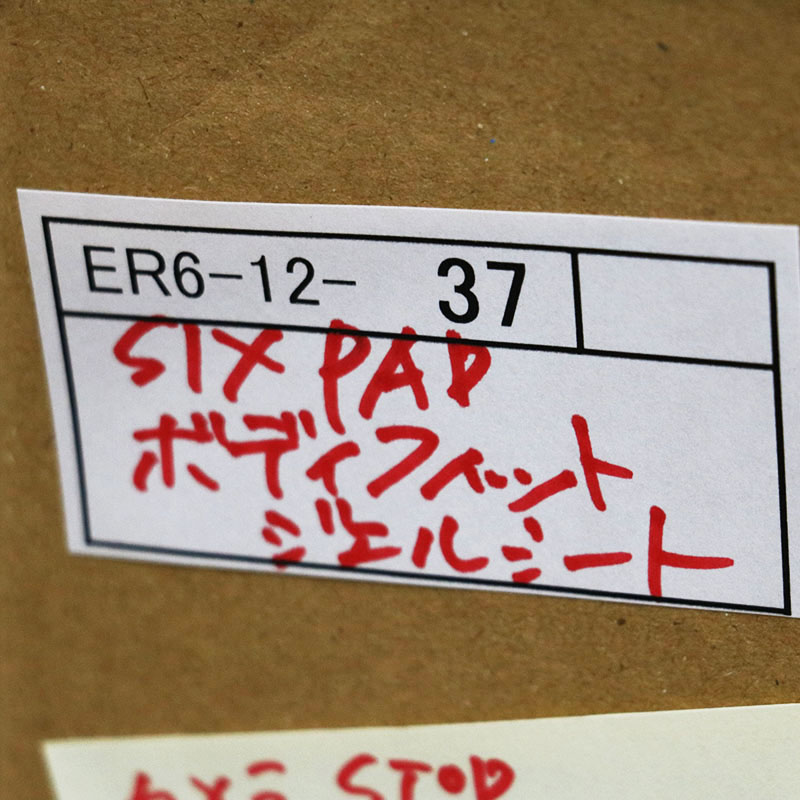 ER6-12- 37
SIXPAD
ボディフィット
ジェルシート
カメラ STOP